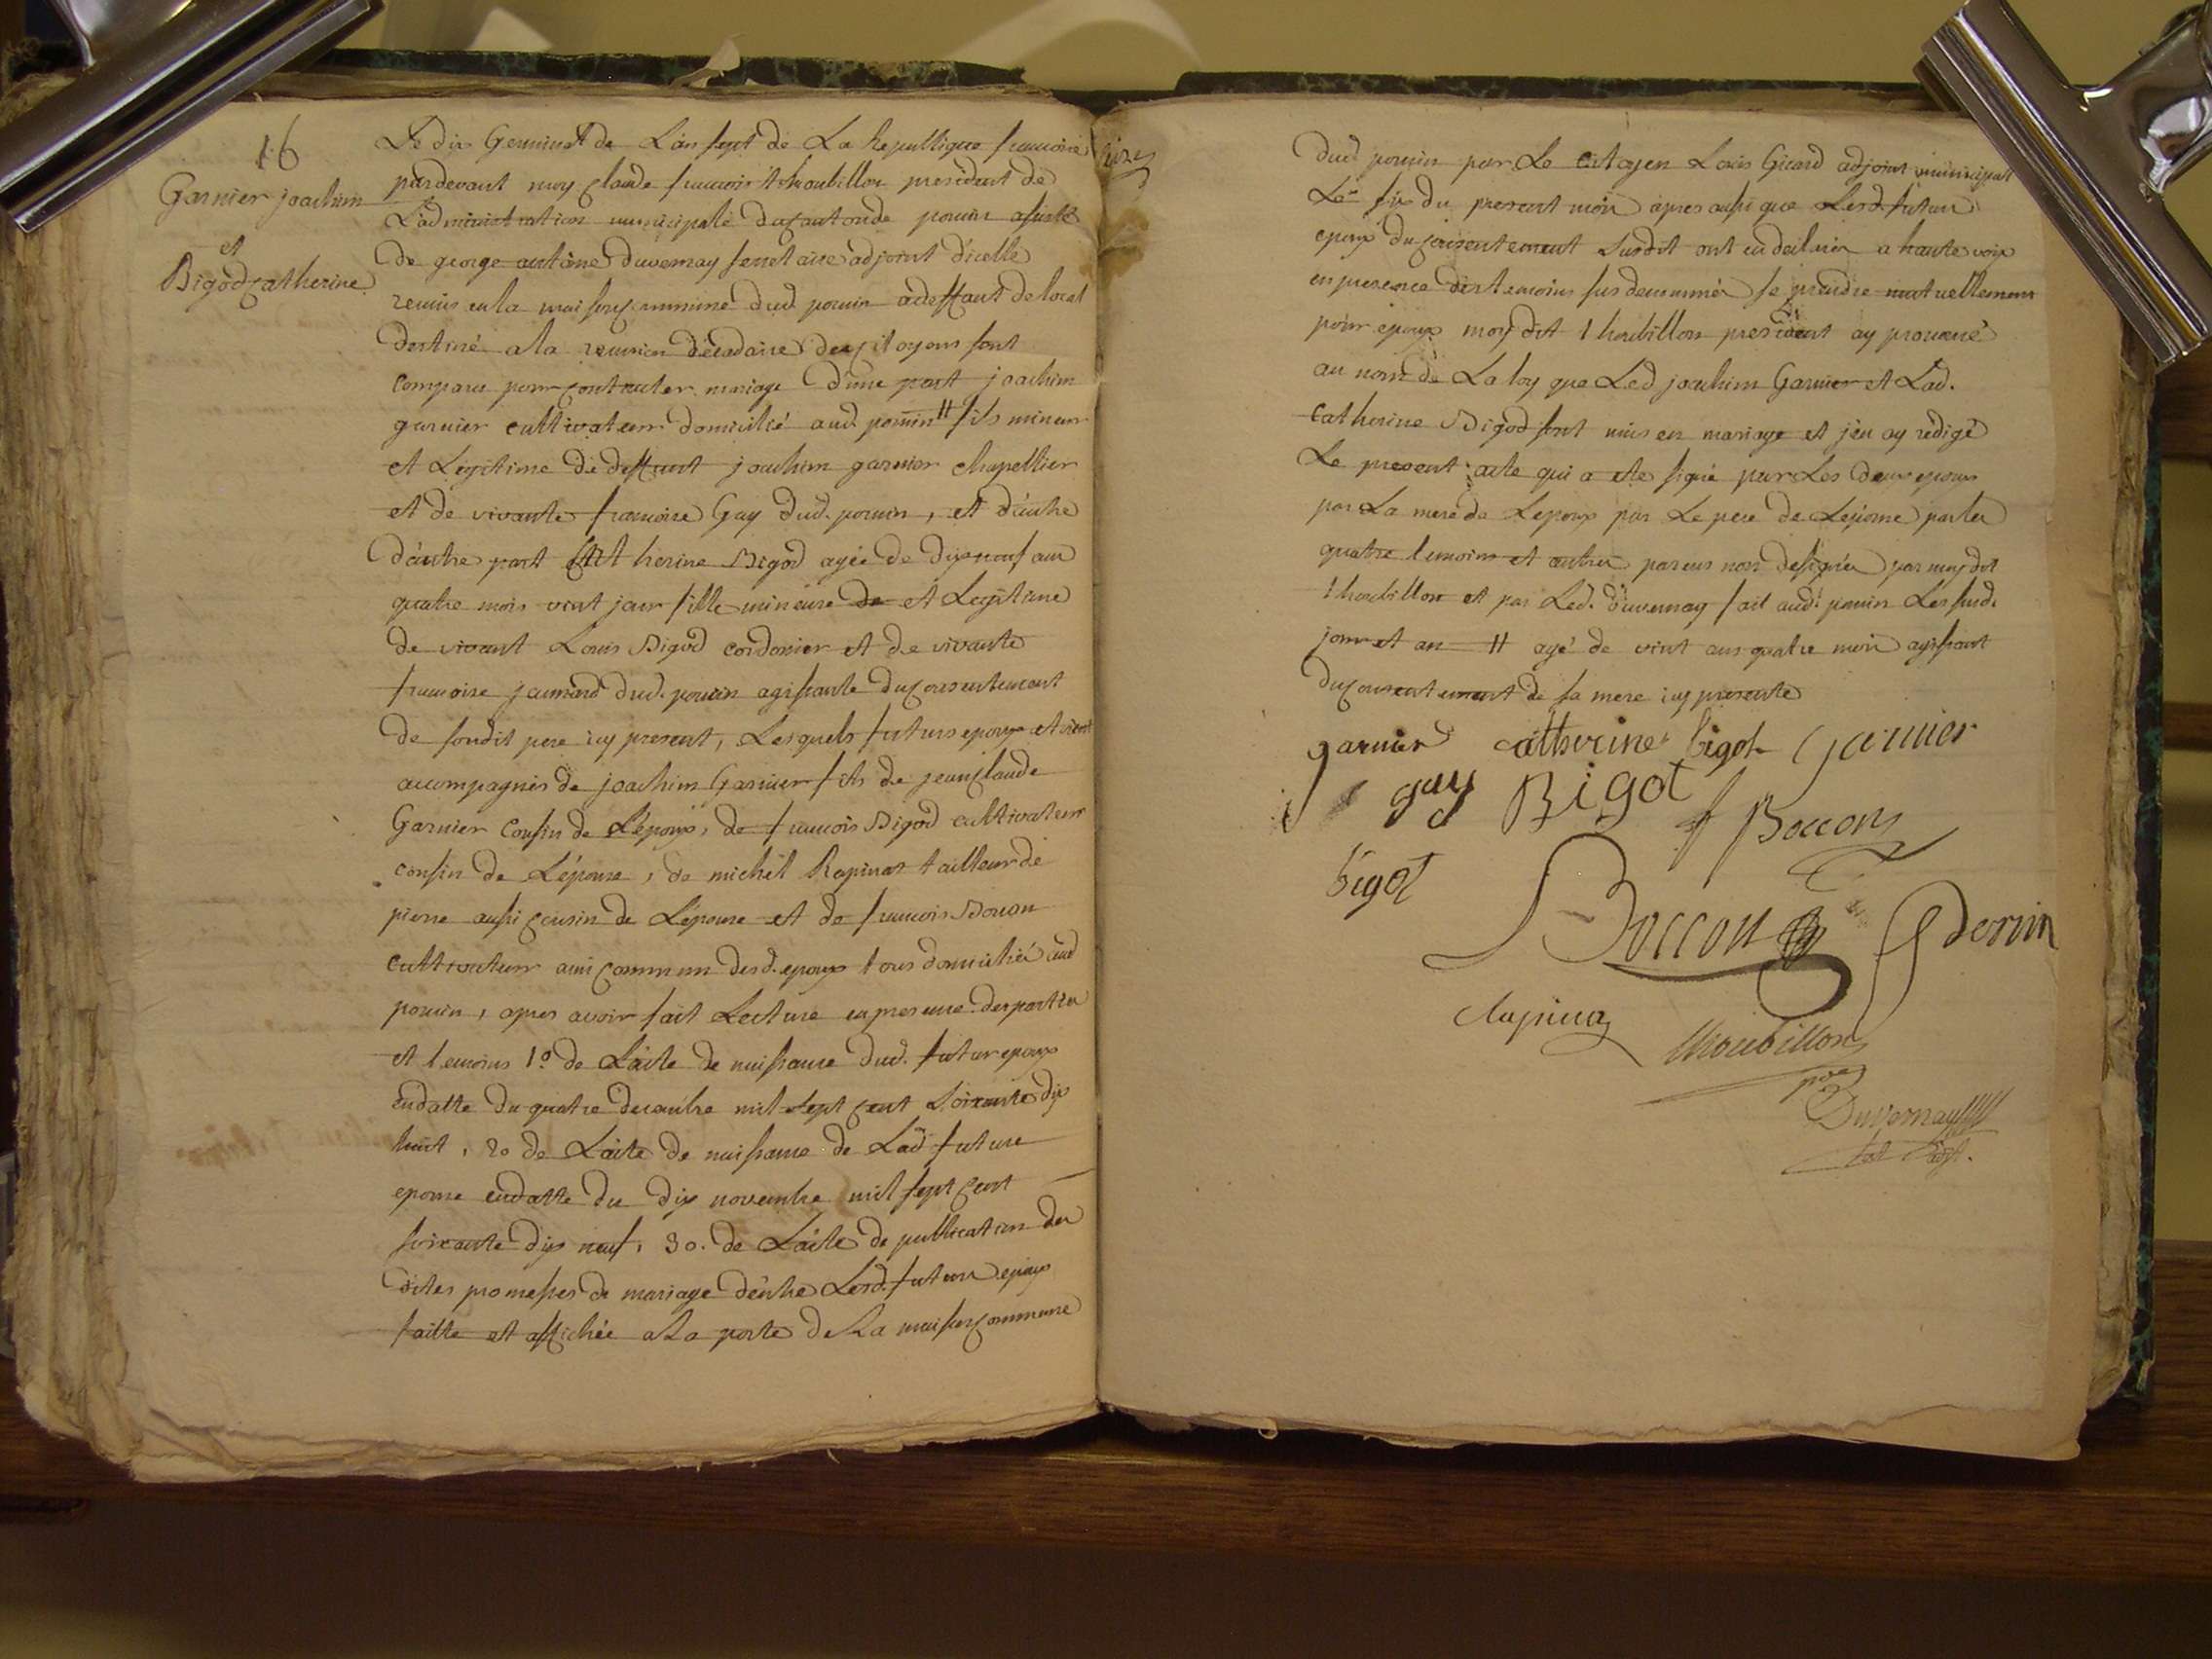 16
Garnier joachim
et
Bigod catherine
Le dix Germinal de L'an sept de La Republique francoise
pardevant moy claude francois thoubillon president de
L'administration municipale du canton de pouzin assisté
de george antoine duvernay secretaire adjoint d'icelle
reunis en la maison commune dud. pouzin a deffaut de local
destiné a la reunion décadaire des citoyens sont
comparu pour contracter mariage d'une part joachim
garnier cultivateur domicilié aud. pouzin # fils mineur
et Legitime de deffunt joachim garnier chapellier
et de vivante francoise Guy dud. pouzin, et d'autre
d'autre part Catherine Bigod agée de dix neuf ans
quatre mois vint jour fille mineure de et Legitime
de vivant Louis Bigod cordonier et de vivante
francoise jamard dud. pouzin agissante du consentement
de sondit pere icy present, Lesquels futurs epoux etoient
accompagnés de joachim Garnier fils de jean claude
Garnier Cousin de L'époux, de francois Bigod cultivateur
cousin de L'épouse, de michel Rapinat tailleur de
pierre aussi cousin de L'épouse et de francois Bocon
cultivateur ami commun desd. epoux tous domiciliés aud
pouzin, apres avoir fait Lecture en presence des parties
et temoins 1o de L'acte de naissance dud. futur epoux
endatte du quatre decembre mil sept cent soixante dix
huit, 2o de L'acte de naissance de Lad future
epouse endatte du dix novembre mil sept cent
soixante dix neuf, 3o. de L'acte de publication des
dites promesses de mariage d'entre Lesd. futurs epoux
faitte et affichée a La porte de La maison commune
dud pouzin par Le citoyen Louis Girard adjoint municipal
Le six du present mois apres aussi que Lesd. futurs
epoux du consentement susdit ont eu declarer a haute voix
en presence des temoins sus denommés se prendre mutuellement
pour epoux moy dit thoubillon president ay prononcé
au nom de La loy que Led joachim Garnier et Lad.
Catherine Bigod sont unis en mariage et j'en ay redigé
Le present acte qui a ete signé par Les deux epoux
par La mere de Lepoux par Le pere de Lepouse par les
quatre temoins et autres parens non designés par moy dit
thoubillon et par Led. duvernay fait aud. pouzin Les susd.
jour et an # agé de vint ans quatre mois agissant
du consentement de sa mere icy presente
garnier catherine bigot Garnier
guy Bigot f Boccon
bigot
Boccon
thoubillon
Duvernay